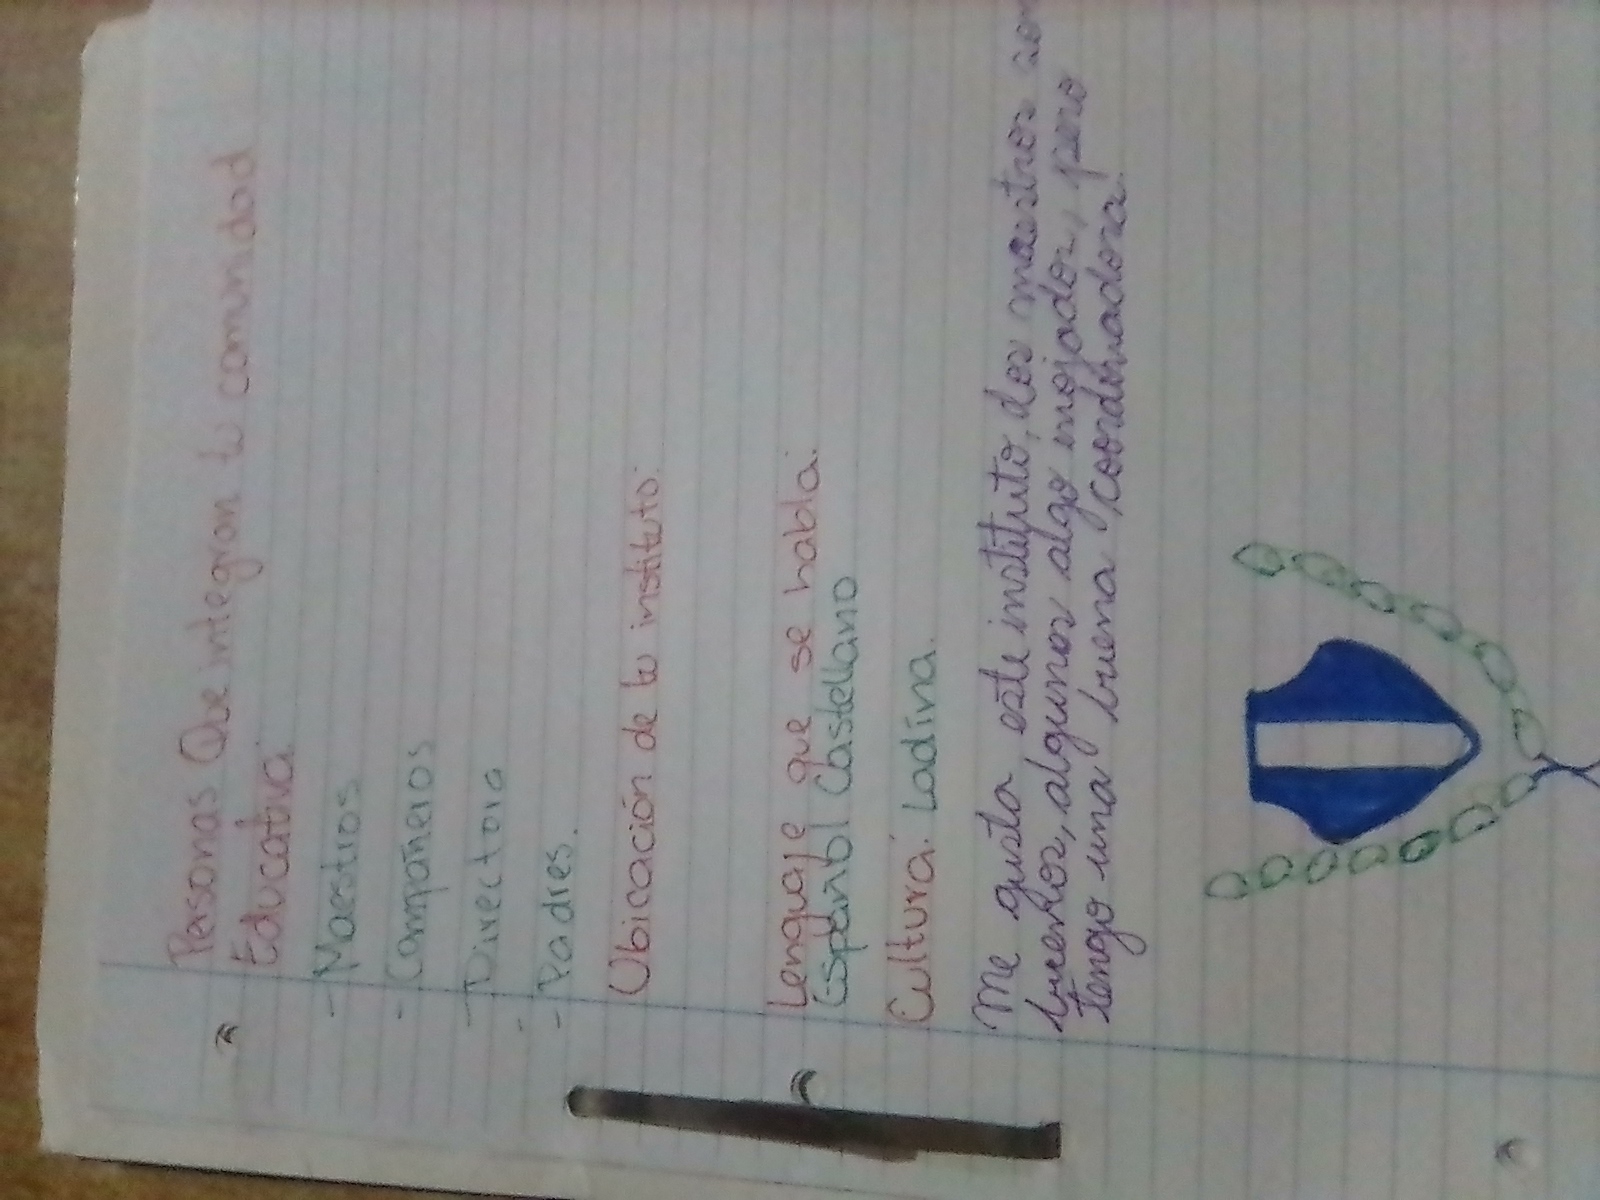 Personas Que integran tu comunidad
Educativa:
- Maestros
- Compañeros
- Directora
- Padres.
Ubicación de tu instituto:
Lenguaje que se habla:
Español Castellano
Cultura: Ladina.
Me gusta este instituto, los maestros son
buenos, algunos algo enojados, pero
tengo una buena coordinadora.